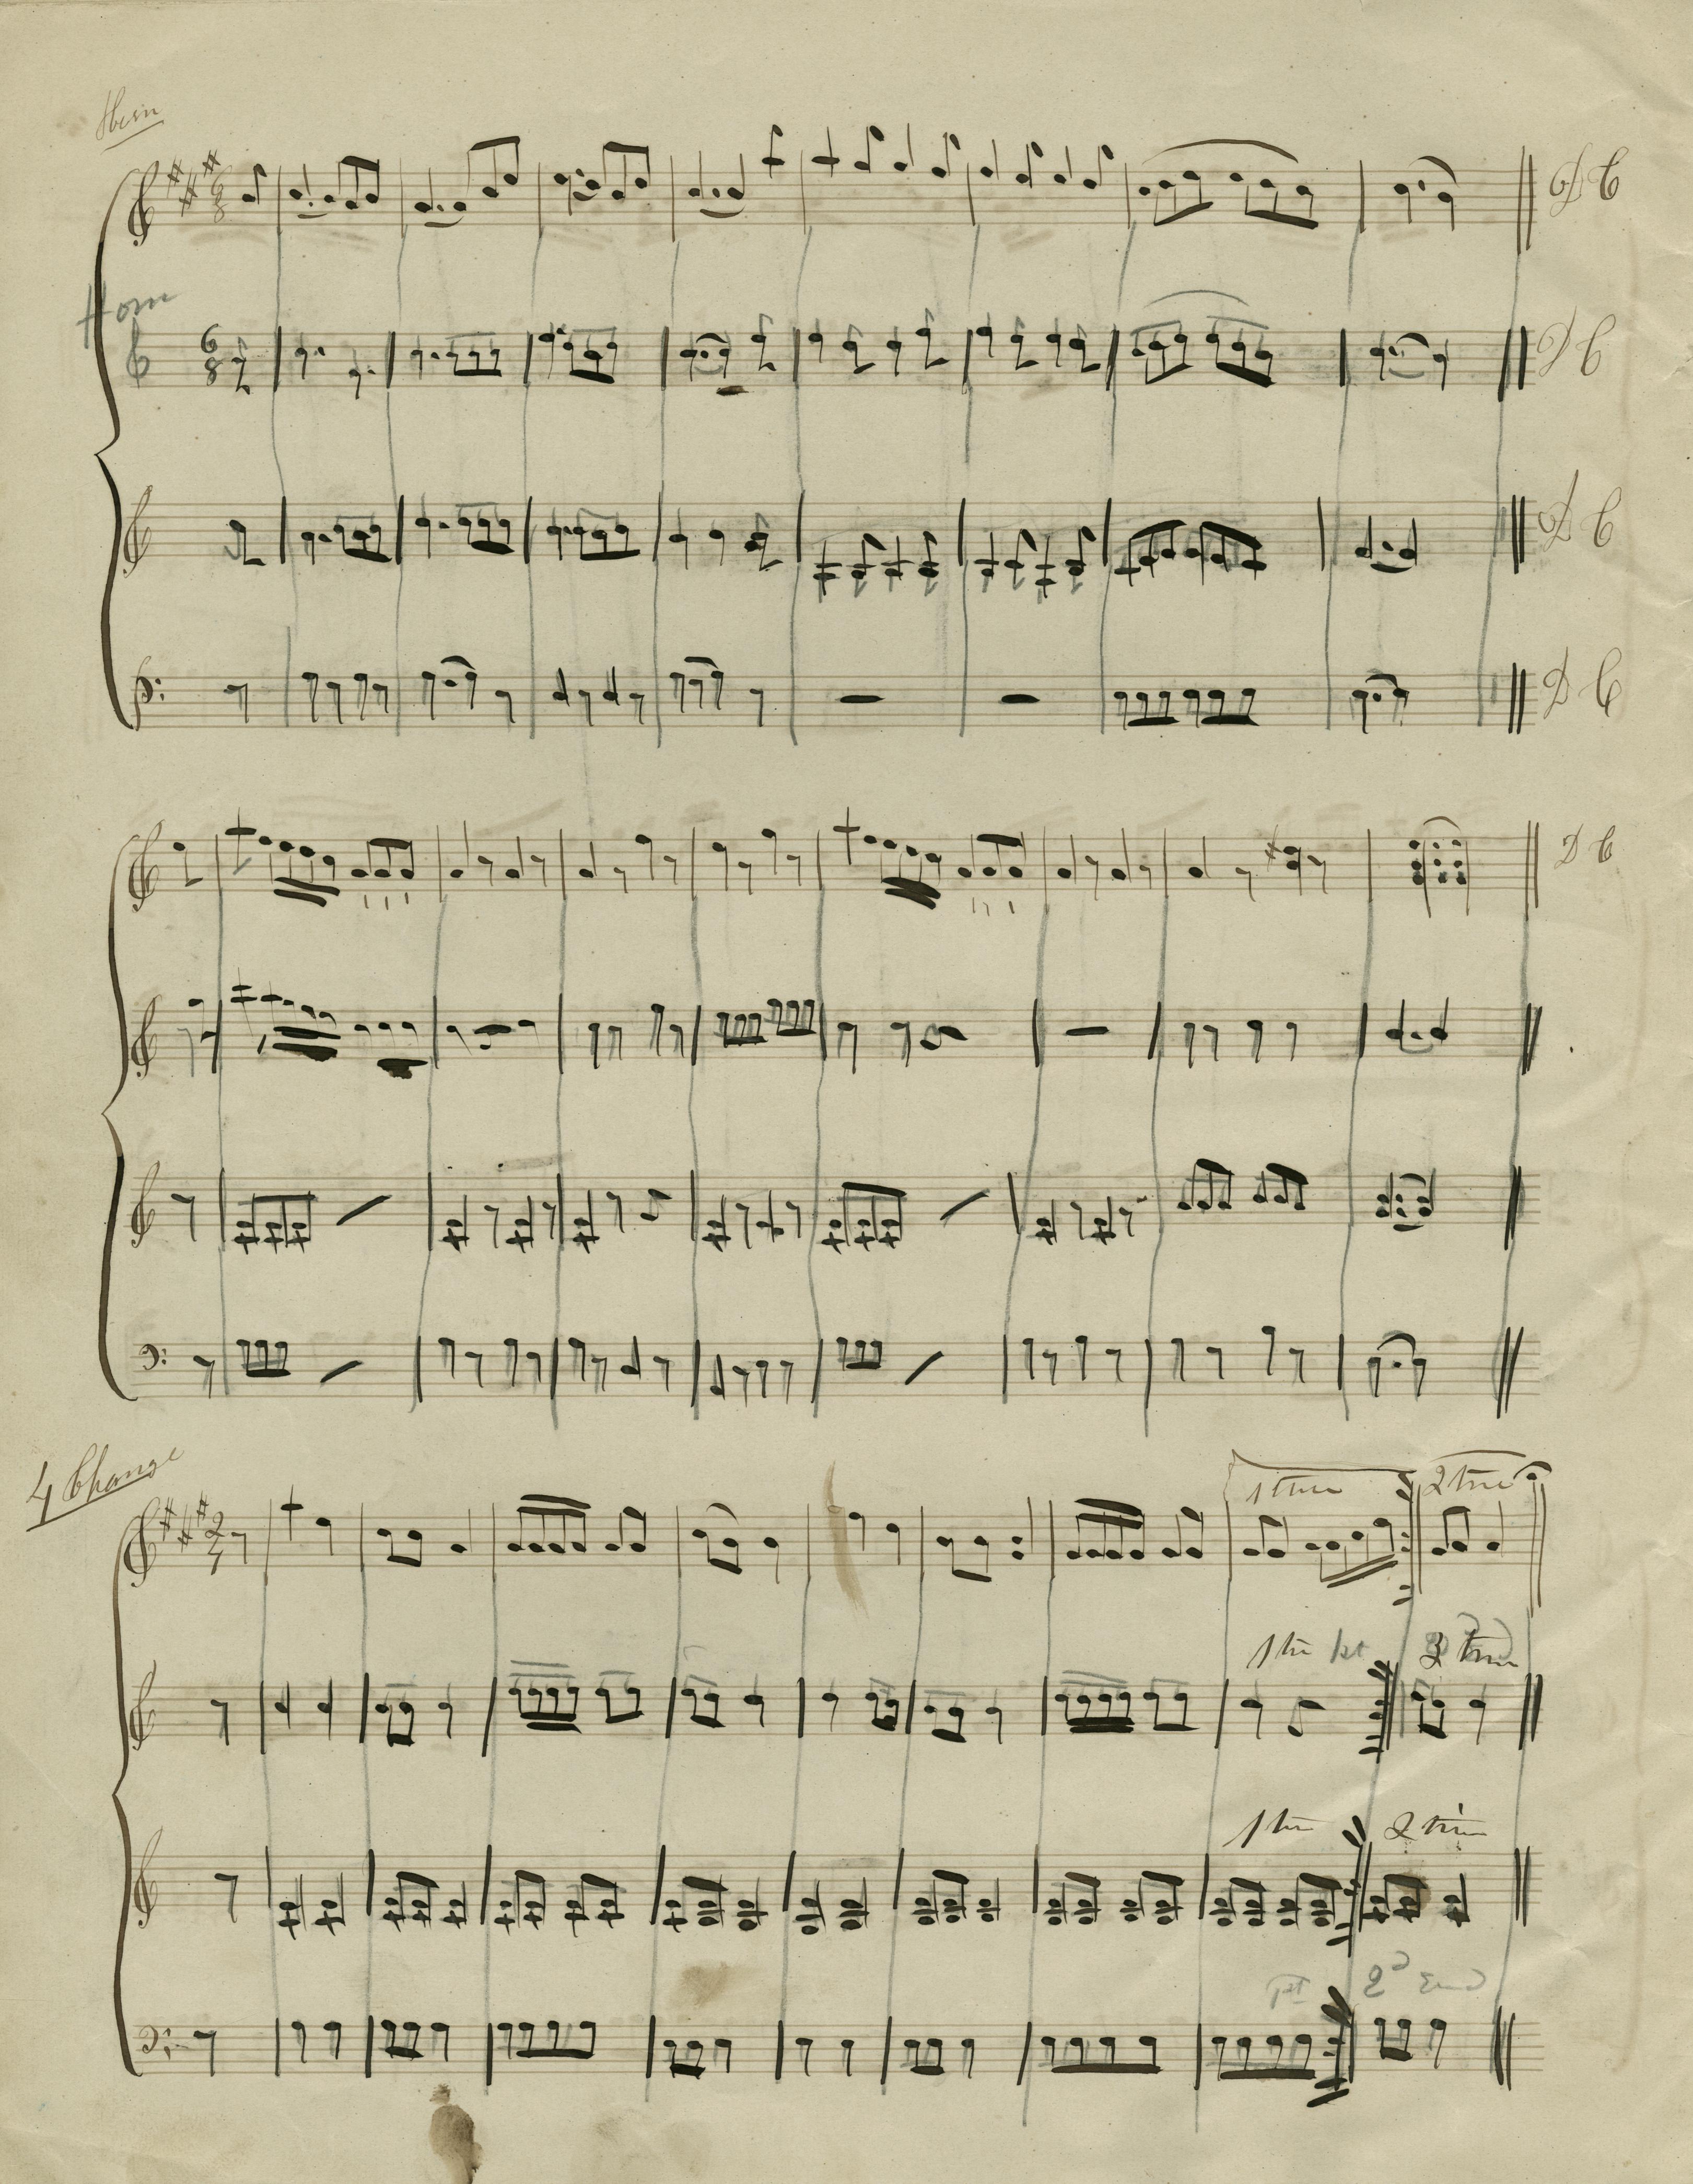 Horn
6
8
D C
Horn
6
8
D C
D C
D C
D C
4 Change
2
4
1 time 2 time
1 tim 1st 2 time
1 tim 2 time
1st 2d End